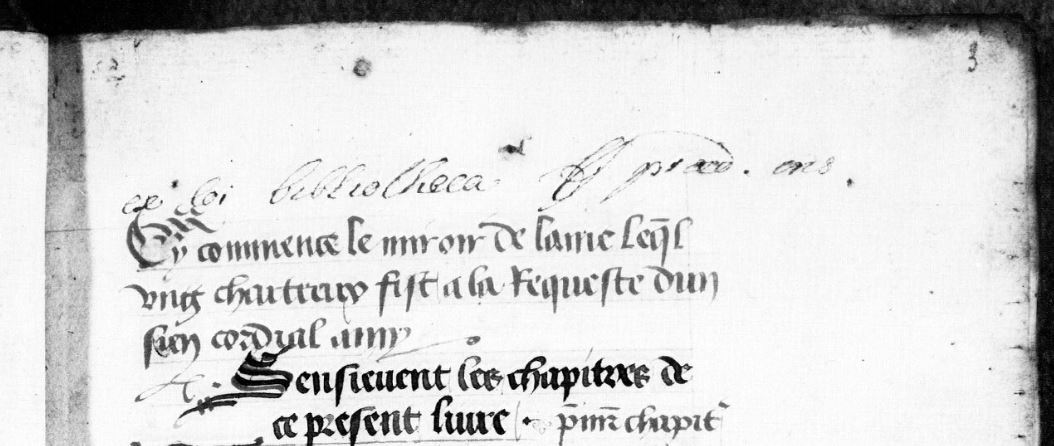 3
ex bibliotheca ff præd. ens.
Cy commence le miroir de lame leq̄l
vng chartreux fist a la Requeste dun
sien cordial amy
Sensieuent les chapitres de
ce present liure . p̄mr̄ chapit̄